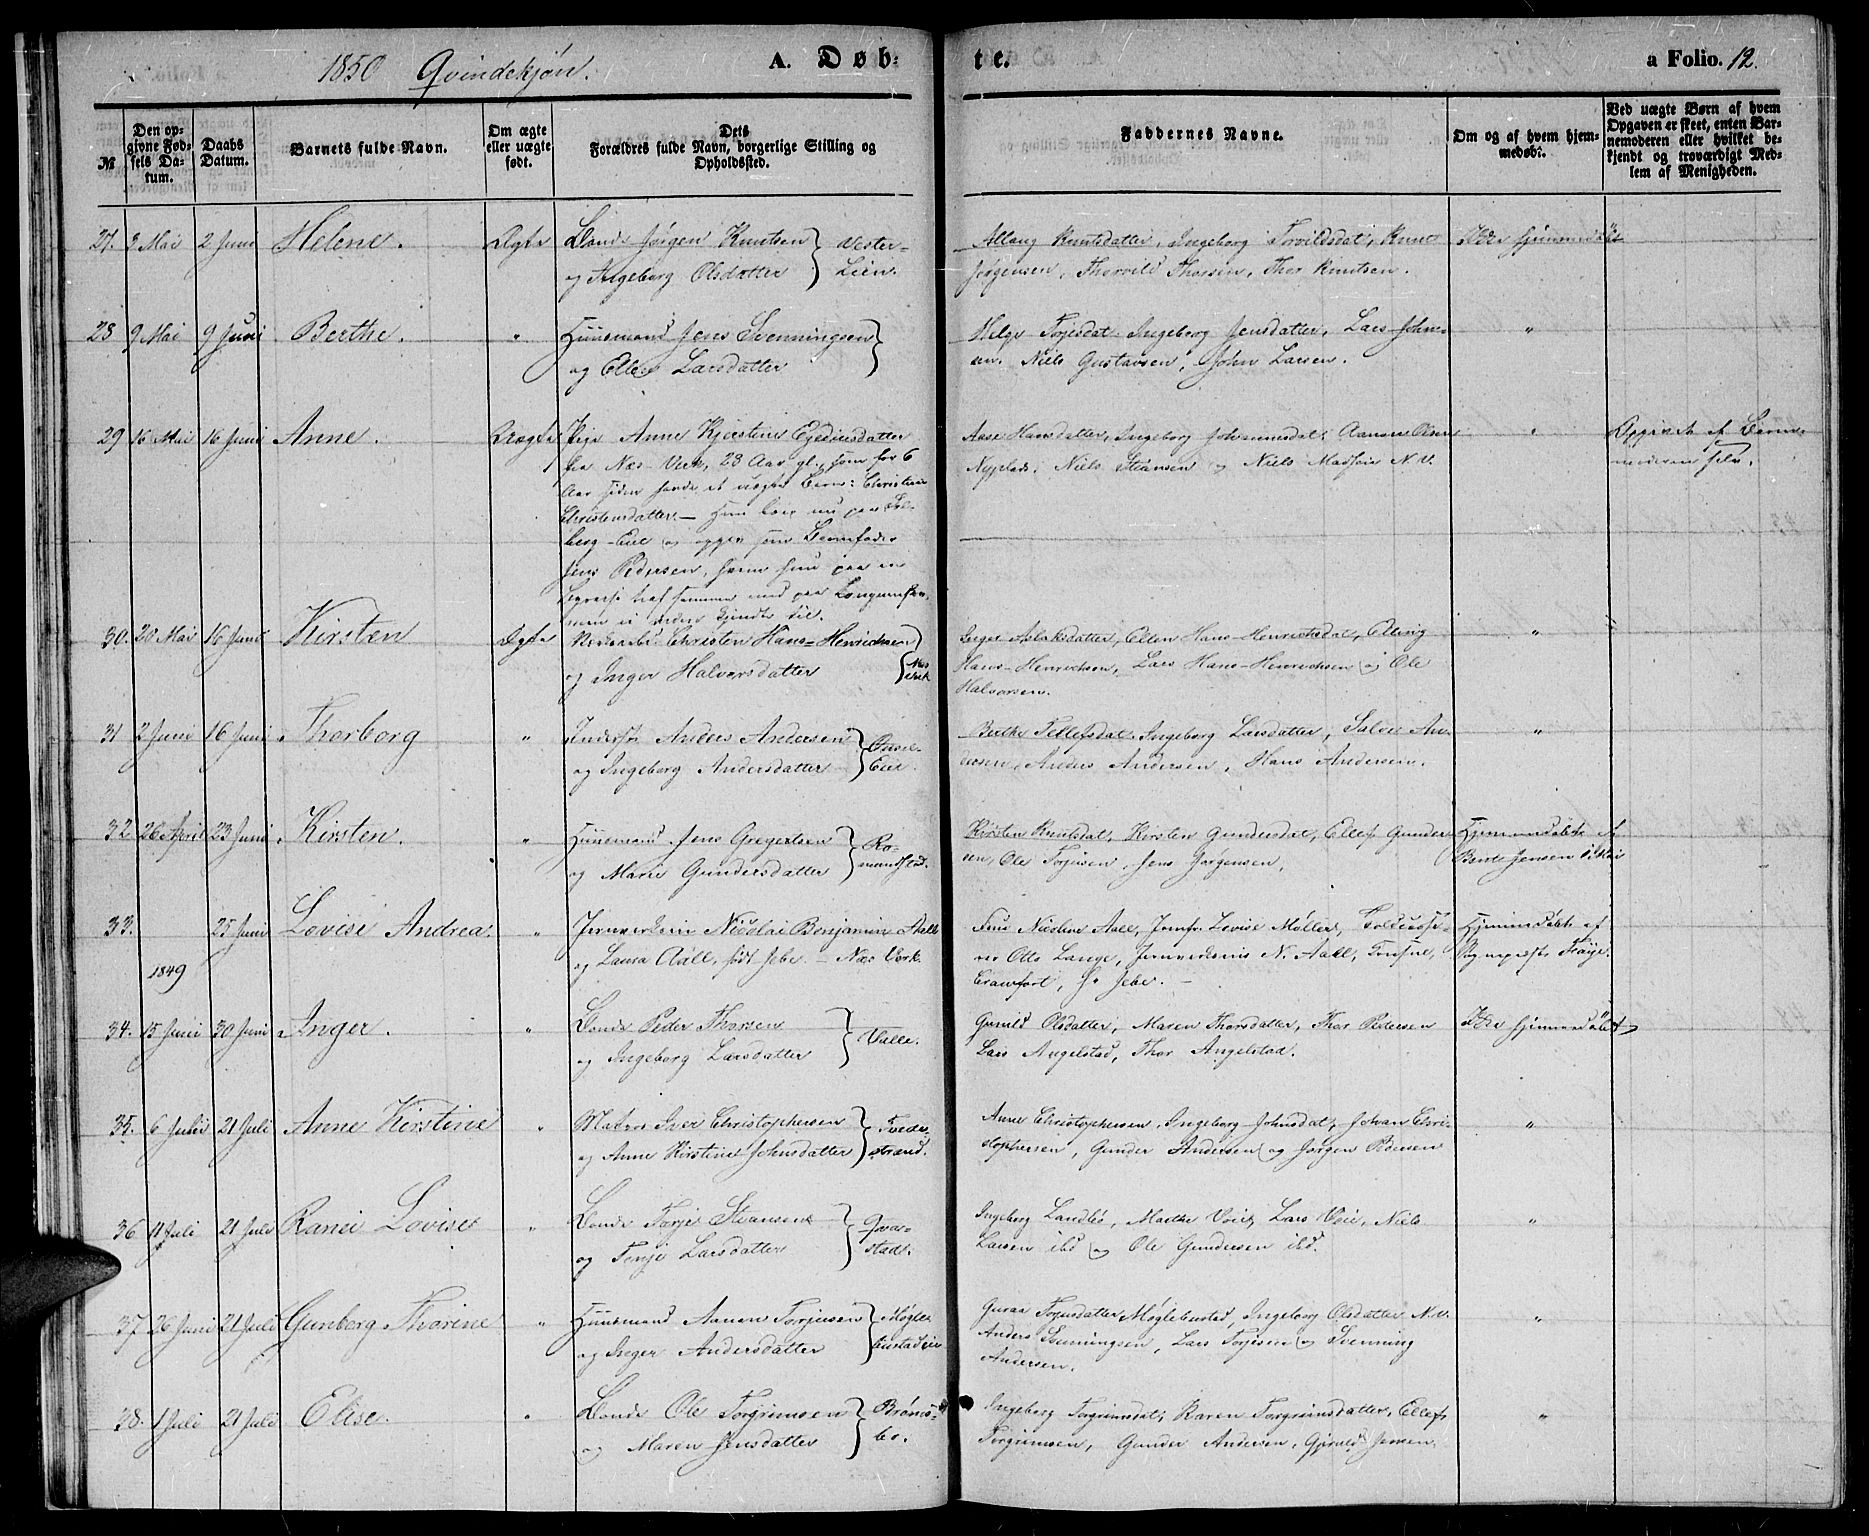 1850 Qvindekjøn. A. Døb- te. a Folio. 12.
№
Den op-
givne Fød-
sels Da-
tum.
Daabs
Datum.
Barnets fulde Navn.
Om ægte
eller uægte
født.
Dets
Forældres fulde Navn, borgerlige Stilling og
Opholdssted.
Faddernes Navne.
Om og af hvem hjem-
medøbt.
Ved uægte Børn af hvem
Opgaven er skeet, enten Bar-
nemoderen eller hvilket be-
kjendt og troværdigt Med-
lem af Menigheden.
27. 3 Mai 2 Juni Helene. Ægte Bonde Jørgen Knutsen Vester-
og Ingeborg Olsdatter Lien.
Knutsdatter, Ingeborg Torvildsdat, Knut
Jørgensen, Thorvild Thorsen, Thor Knutsen.
Ikke hjemmedøbt
28 9 Mai 9 Juni Berthe. " Huusmand Jens Svenningsen
og Ellen Larsdatter
Helge Torjesdat. Ingeborg Jensdatter, Lars John-
sen. Niels Gustavsen, John Larsen. "
29 16 Mai 16 Juni Anne. Uægte Pige Anne Kjerstine Egediusdatter
fra Næs-Verk, 28 Aar gl., som for 6
Aar siden havde et uægte Barn: Christine
Christensdatter. – Hun boer nu paa Sol-
berg-Eie og opgav som Barnefader
Jens Pedersen, hvem hun paa en
traf sammen med paa
men ei videre kjendte til.
Aase Hansdatter, Ingeborg Johannesdat, Aanon Olsen
Nyplads. Niels Steansen og Niels Madsen N.V.
"
Opgivet af Barne-
moderen selv.
30. 20 Mai 16 Juni Kirsten Ægte Christen Hans-Henrichsen Næs
og Inger Halvorsdatter Verk
Inger Aslaksdatter, Ellen Hans-Henrichsdat, Ellevig
Hans-Henrichsen, Lars Hans-Henrichsen og Ole
Halvorsen. "
31 2 Juni 16 Juni Thorborg " Inderst Anders Andersen
og Ingeborg Andersdatter Eie.
Berthe Tellefsdat. Ingeborg Larsdatter, Salve An-
dersen, Anders Andersen, Hans Andersen. "
32 26 April 23 Juni Kirsten. " Huusmand Jens Gregertsen Ro-
og Maren Gundersdatter mundstad.
Kirsten Knutsdat, Kirsten Gundersdat, Ellef Gunder-
sen, Ole Torjusen, Jens Jørgensen.
Hjemmedøbt af
Bent Jensen
33. 25 Juni Lovise Andrea. " Jernverkseier Nicolai Benjamin Aall
1849 og Laura Aall, født Jebe. – Næs Verk.
Frue Nicoline Aall, Jomfr. Lovise Møller,
Otto Lange, Jernverkseier N. Aall,
Crawfort, Hr Jebe. –
Hjemmedøbt af
Sognepræst
34. 15 Juni 30 Juni Inger. " Bonde Peder Thorsen Valle.
og Ingeborg Larsdatter
Gunild Olsdatter, Maren Thorsdatter, Thor Pedersen
Lars Angelstad, Thor Angelstad.
Ikke hjemmedøbt
35. 6 Juli 21 Juli Anne Kirstine " Matros Iver Christophersen Tvede-
og Anne Kirstine Johnsdatter strand.
Anne Christophersen, Ingeborg Johnsdat, Johan Chri-
stophersen, Gunder Andersen og Jørgen Pedersen "
36 11 Juli 21 Juli Ranei Lovise " Bonde Torje Steansen Qvar-
og Terje Larsdatter stad.
Ingeborg Landbø, Marthe Voie, Lars Voie, Niels
Larsen ibd og Ole Gundersen ibd. "
37 26 Juni 21 Juli Gunborg Thorine " Huusmand Aanon Torjusen Møgle-
og Inger Andersdatter bustadeie
Guraa Torjusdatter Møglebustad, Ingeborg Olsdatter N.V.
Anders Svenningsen, Lars Torjusen og Svenning
Andersen. "
38. 1 Juli 21 Juli Elise. " Bonde Ole Torgrimsen Brøms-
og Maren Jensdatter bo.
Ingeborg Torgrimsdat, Karen Torgrimsdatter, Ellef
Torgrimsen, Gunder Andersen, Jensen. "